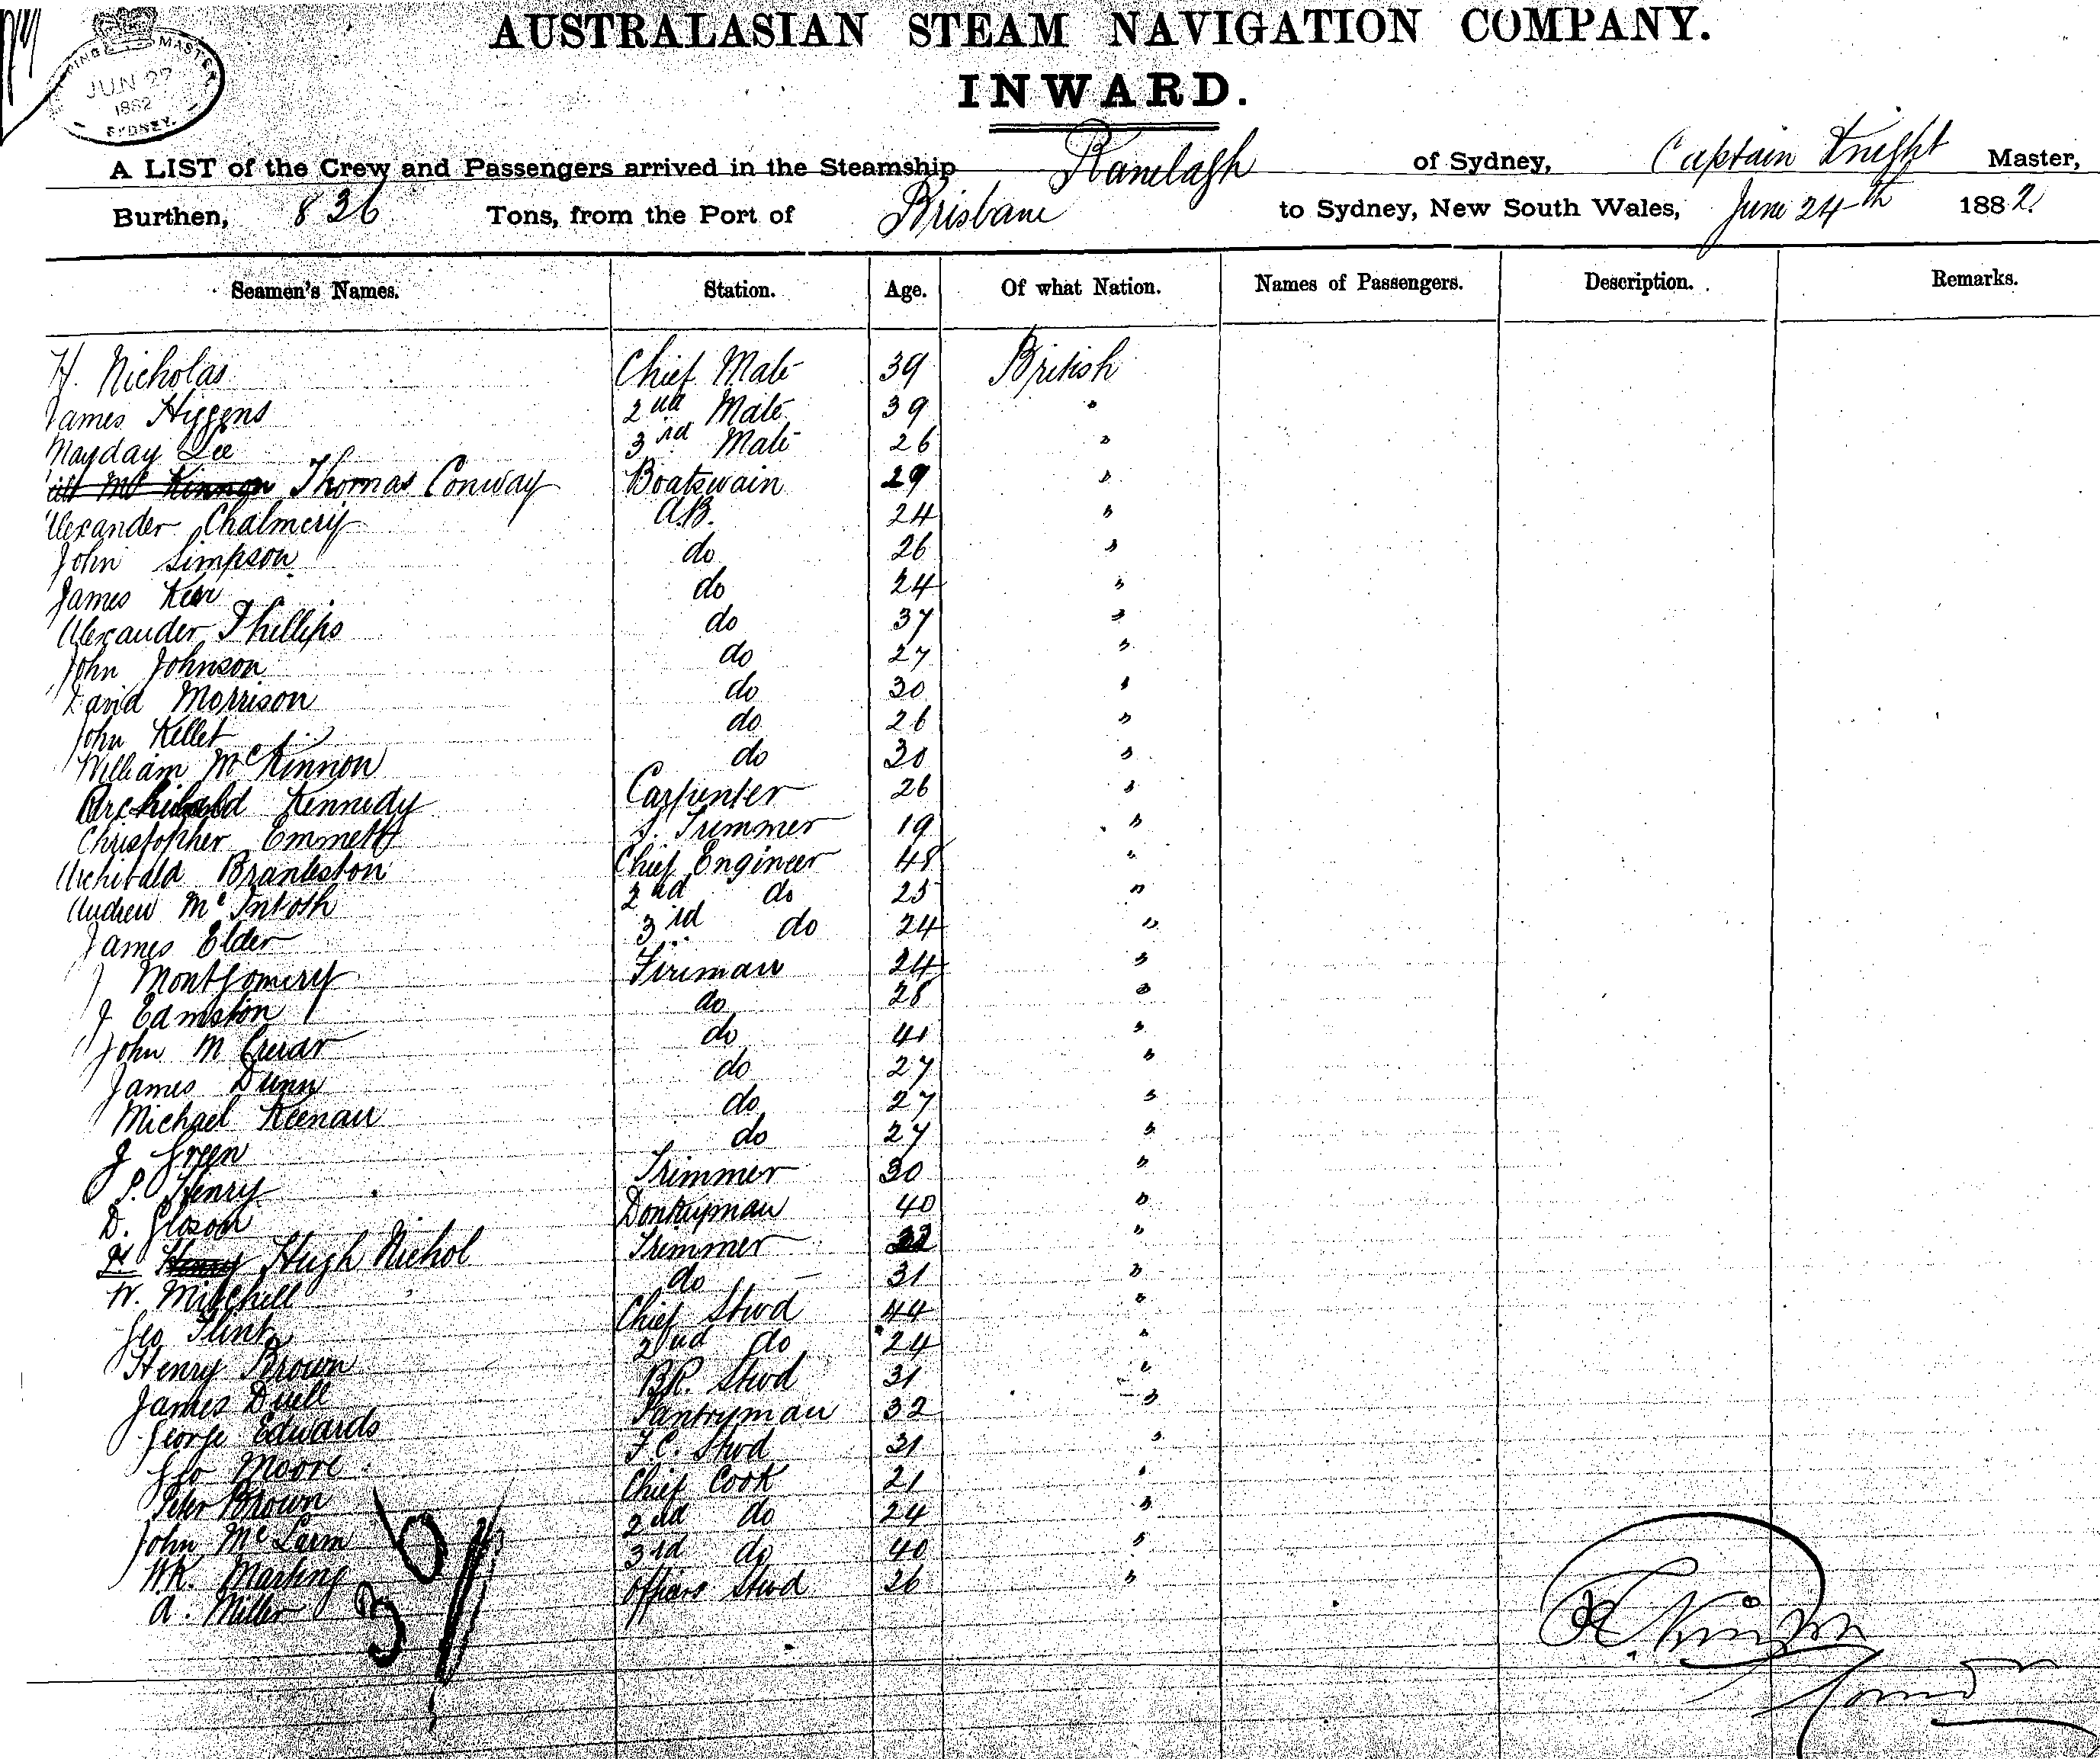 SHIPPING MASTER
JUN 27
1882
SYDNEY.
AUSTRALASIAN STEAM NAVIGATION COMPANY.
INWARD.
A LIST of the Crew and Passengers arrived in the Steamship Ranelagh of Sydney, Captain Knight Master,
Burthen, 836 Tons, from the Port of Brisbane to Sydney, New South Wales, June 24th 1882.
Seamen's Names. Station. Age. Of what Nation. Names of Passengers. Description. Remarks.
H. Nicholas Chief Mate 39 British
James Higgens 2nd Mate 39 "
Mayday Lee 3rd Mate 26 "
Mc Kinnon Thomas Conway Boatswain 29 "
Alexander A.B. 24 "
John Simpson do 26 "
James Kerr do 24 "
Alexander Phillips do 37 "
John Johnson do 27 "
David Morrison do 30 "
John Kellet do 26 "
William McKinnon do 30 "
Archibald Kennedy Carpenter 26 "
Christopher Emmett Trimmer 19 "
Archibald Chief Engineer 48 "
Andrew McIntosh 2nd do 25 "
James Elder 3rd do 24 "
J Montgomery Fireman 24 "
J Edmiston do 28 "
John do 41 "
James Dunn do 27 "
Michael Keenan do 27 "
J Green do 27 "
P. Henry Trimmer 30 "
D. Donkeyman 40 "
Henry Hugh Nichol Trimmer "
W. Mitchell do 31 "
Geo Flint Chief Stwd 44 "
Henry Brown 2nd do 24 "
James Duell B.R. Stwd 31 "
George Edwards Pantryman 32 "
Geo Moore F.C. Stwd 31 "
Peter Brown Chief Cook 21 "
John 2nd do 24 "
W.K. 3rd do 40 "
A. Miller Officers Stwd 26 "
36